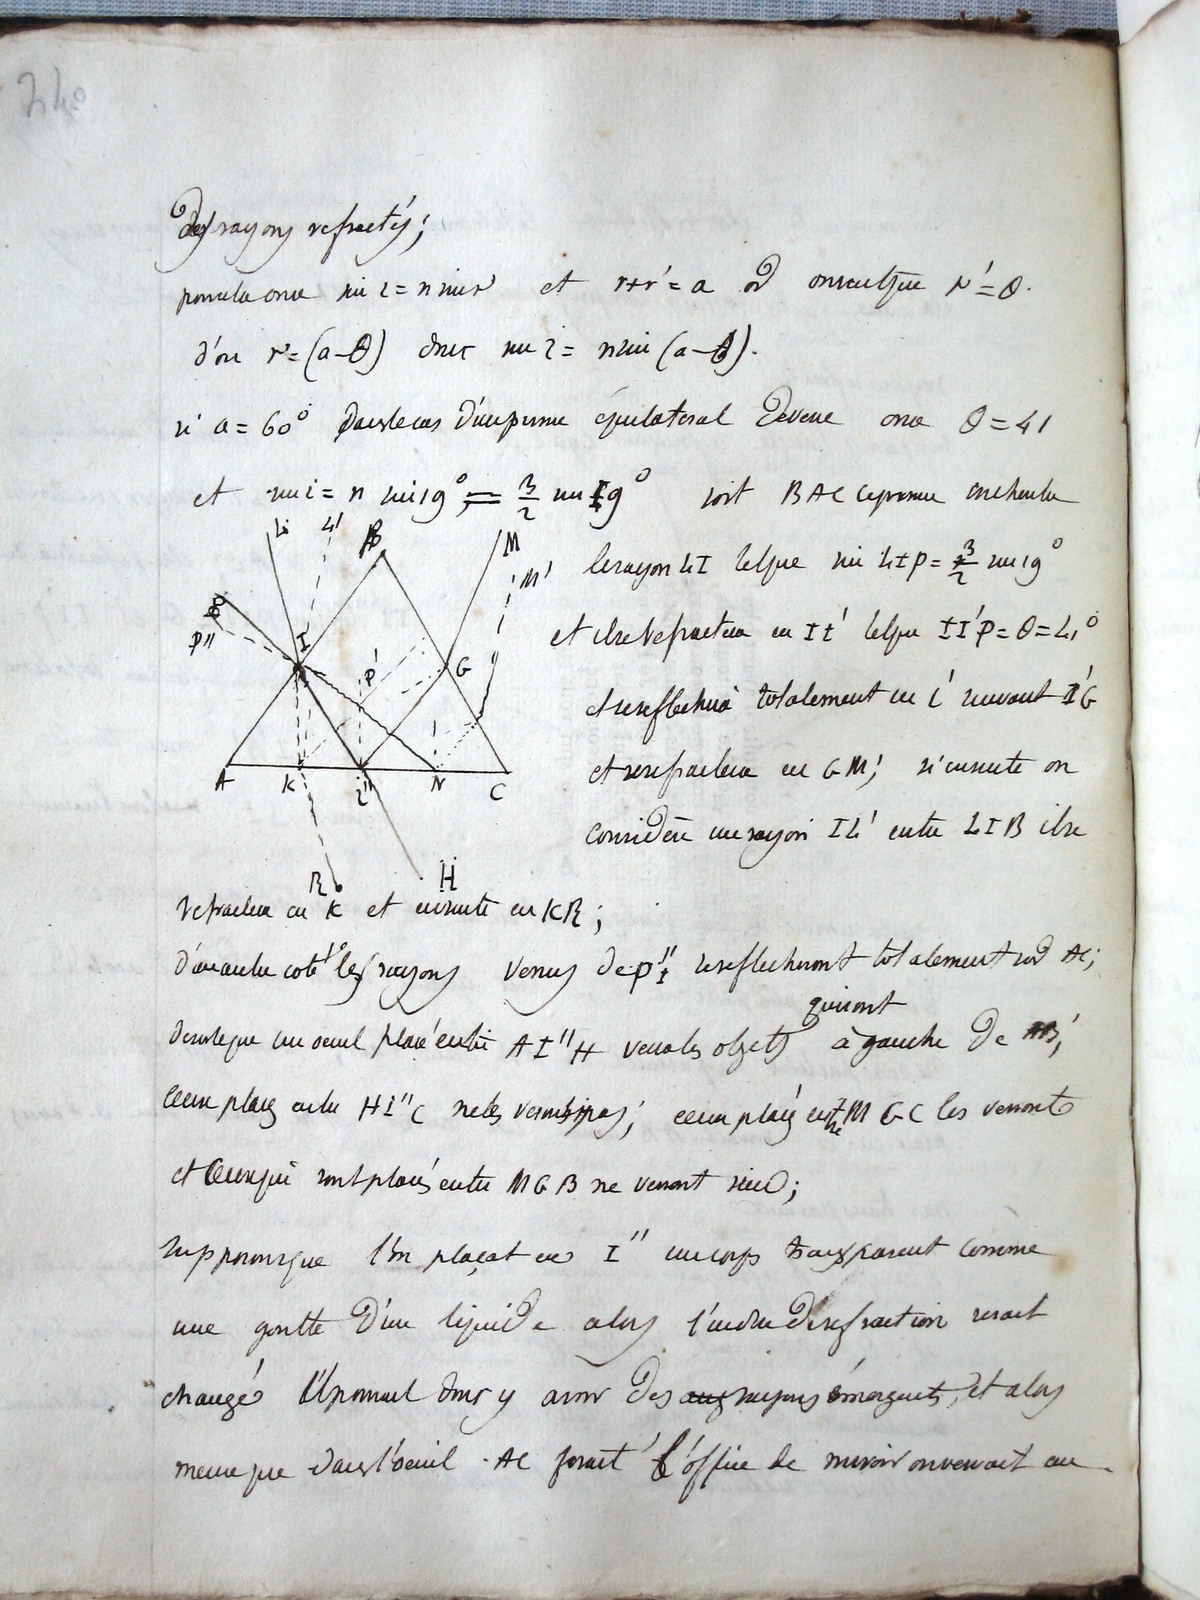 240
des rayons refractés;
pour cela on a sin i = n sin r et r+r' = a or on veut que r' = θ.
d'ou r = (a-θ) donc sin i = n sin (a-θ).
si a = 60° dans le cas d'un prisme équilateral de verre on a θ = 41
et sin i = n sin 19° = 3/2 sin 19° soit BAC ce prisme on cherche
le rayon LI tel que sin LIP = 3/2 sin 19°
et il se refractera en II' tel que II'P = θ = 41°
et se reflechira totalement en I' suivant I'G
et se refractera en GM; si ensuite on
considère un rayon IL' entre LIB il se
L L' B M M'
P P'' I P' G
A K I'' N C
R H
refractera en K et ensuite en KR;
d'un autre coté les rayons venus de P''I se reflechiront totalement sur AC;
de sorte qu'un oeuil placé entre AI''H verra les objets qui sont à gauche de AB;
ceux placés entre HI''C ne les verront pas; ceux placés entre MGC les verront
et ceux qui sont placés entre MGB ne verront rien;
supposons que l'on plaçat en I'' un corps transparent comme
une goutte d'un liquide alors l'indice de refraction serait
changé il pourrait donc y avoir des rayons émergents, et alors
meme que dans l'oeuil AC ferait l'office de miroir on verrait au